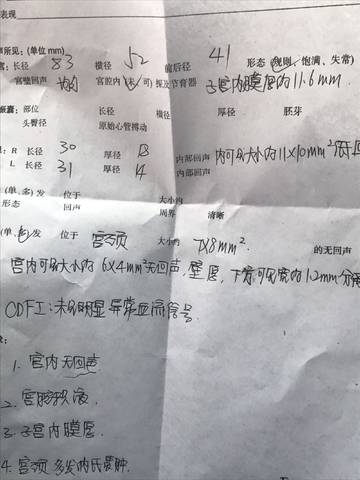 表现
声所见：(单位 mm)
宫：长径 83 横径 52 前后径 41 形态 (规则、饱满、失常)
宫壁回声 均匀 宫腔内 (未/可) 探及节育器 子宫内膜厚约11.6mm
胚囊：部位 长径 横径 厚径 胚芽
头臀径 原始心管搏动
R 长径 30 厚径 13 内部回声 内可见大小约11X10mm²
L 长径 31 厚径 14 内部回声
(单、多) 发 位于 大小约
形态 回声 周界 清晰
(单、多) 发 位于 宫颈 大小约 7X8mm² 的无回声
宫内可见大小约 6X4mm²无回声,壁厚,下方可见宽约1.2mm分离
CDFI:未见明显异常血流信号
:
1. 宫内无回声
2. 宫腔积液.
3. 子宫内膜厚.
4. 宫颈多发纳氏囊肿.